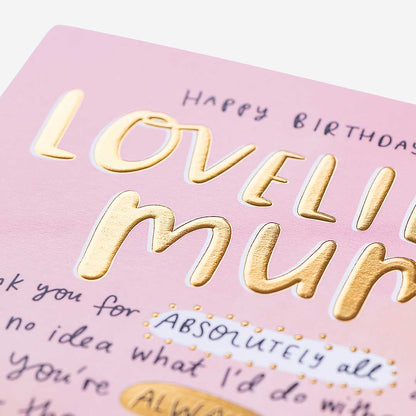 HAPPY BIRTHDAY
LOVELI
mum
nk you for ABSOLUTELY all
no idea what I'd do witho
you're ALWA